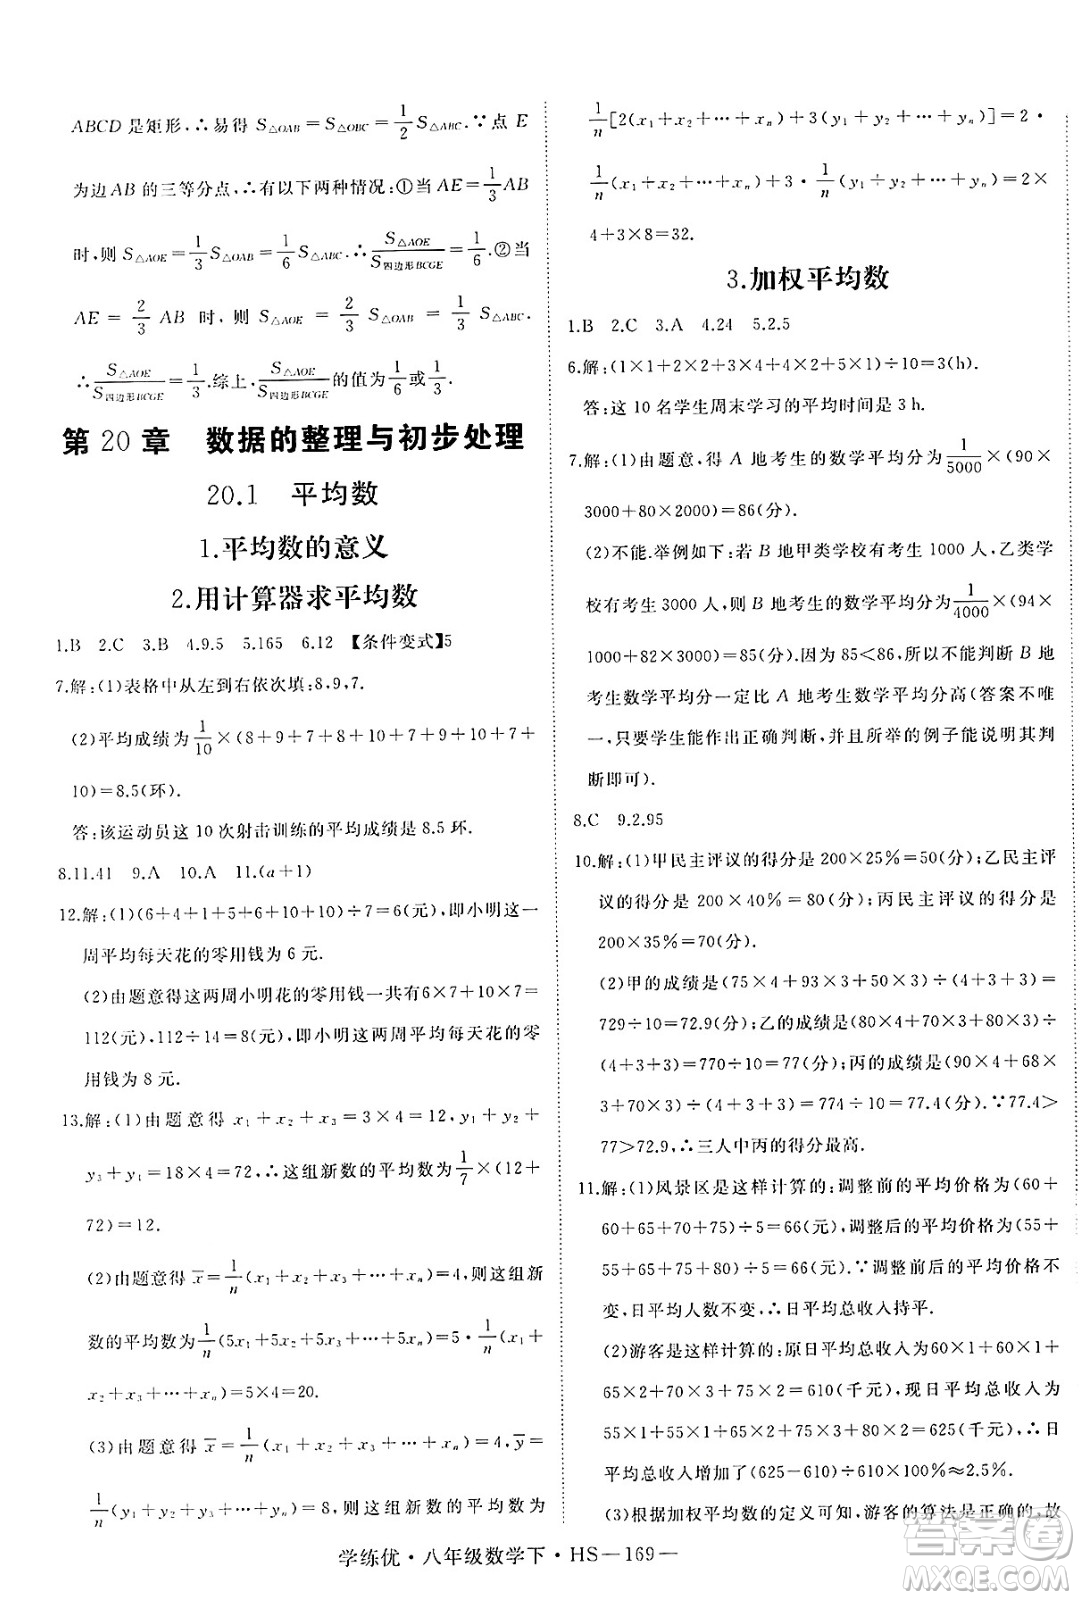 ABCD 是矩形,∴易得 S△OAB = S△OBC = 1/2 S△ABC.∵点 E
为边AB 的三等分点,∴有以下两种情况:①当 AE=1/3 AB
时,则 S△AOE=1/3 S△OAB=1/6 S△ABC.∴S△AOE/S四边形BCGE=1/6.②当
AE = 2/3 AB 时,则 S△AOE = 2/3 S△OAB = 1/3 S△ABC.
∴S△AOE/S四边形BCGE=1/3.综上,S△AOE/S四边形BCGE的值为1/6或1/3.
第 20 章 数据的整理与初步处理
20.1 平均数
1.平均数的意义
2.用计算器求平均数
1.B 2.C 3.B 4.9.5 5.165 6.12 【条件变式】5
7.解:(1)表格中从左到右依次填:8,9,7.
(2)平均成绩为1/10×(8+9+7+8+10+7+10+9+7+
10)=8.5(环).
答:该运动员这 10 次射击训练的平均成绩是 8.5 环.
8.11.41 9.A 10.A 11.(a+1)
12.解:(1)(6+4+1+5+6+10+10)÷7=6(元),即小明这一
周平均每天花的零用钱为 6 元.
(2)由题意得这两周小明花的零用钱一共有6×7+10×7=
112(元),112÷14=8(元),即小明这两周平均每天花的零
用钱为 8 元.
13.解:(1)由题意得 x₁+x₂+x₃=3×4=12,y₁+y₂+
y₃+y₄=18×4=72,∴这组新数的平均数为1/7×(12+
72)=12.
(2)由题意得x̅=1/n(x₁+x₂+x₃+…+xₙ)=4,则这组新
数的平均数为1/n(5x₁+5x₂+5x₃+…+5xₙ)=5·1/n(x₁+
x₂+x₃+…+xₙ)=5×4=20.
(3)由题意得x̅=1/n(x₁+x₂+x₃+…+xₙ)=4,y̅=
1/n(y₁+y₂+y₃+…+yₙ)=8,则这组新数的平均数为
1/n[2(x₁+x₂+…+xₙ)+3(y₁+y₂+…+yₙ)]=2·
1/n(x₁+x₂+…+xₙ)+3·1/n(y₁+y₂+…+yₙ)=2×
4+3×8=32.
3.加权平均数
1.B 2.C 3.A 4.24 5.2.5
6.解:(1×1+2×2+3×4+4×2+5×1)÷10=3(h).
答:这 10 名学生周末学习的平均时间是 3 h.
7.解:(1)由题意,得 A 地考生的数学平均分为1/5000×(90×
3000+80×2000)=86(分).
(2)不能.举例如下:若 B 地甲类学校有考生 1000 人,乙类学
校有考生3000 人,则 B 地考生的数学平均分为1/4000×(94×
1000+82×3000)=85(分).因为85<86,所以不能判断 B 地
考生数学平均分一定比 A 地考生数学平均分高(答案不唯
一,只要学生能作出正确判断,并且所举的例子能说明其判
断即可).
8.C 9.2.95
10.解:(1)甲民主评议的得分是 200×25%=50(分);乙民主评
议的得分是 200×40%=80(分);丙民主评议的得分是
200×35%=70(分).
(2)甲的成绩是(75×4+93×3+50×3)÷(4+3+3)=
729÷10=72.9(分);乙的成绩是(80×4+70×3+80×3)÷
(4+3+3)=770÷10=77(分);丙的成绩是(90×4+68×
3+70×3)÷(4+3+3)=774÷10=77.4(分).∵77.4>
77>72.9,∴三人中丙的得分最高.
11.解:(1)风景区是这样计算的:调整前的平均价格为(60+
60+65+70+75)÷5=66(元),调整后的平均价格为(55+
55+65+75+80)÷5=66(元).∵调整前后的平均价格不
变,日平均人数不变,∴日平均总收入持平.
(2)游客是这样计算的:原日平均总收入为60×1+60×1+
65×2+70×3+75×2=610(千元),现日平均总收入为
55×1+55×1+65×2+75×3+80×2=625(千元),∴日
平均总收入增加了(625-610)÷610×100%≈2.5%.
(3)根据加权平均数的定义可知,游客的算法是正确的,故
学练优·八年级数学下·HS—169—
答案圈
MXQE.COM